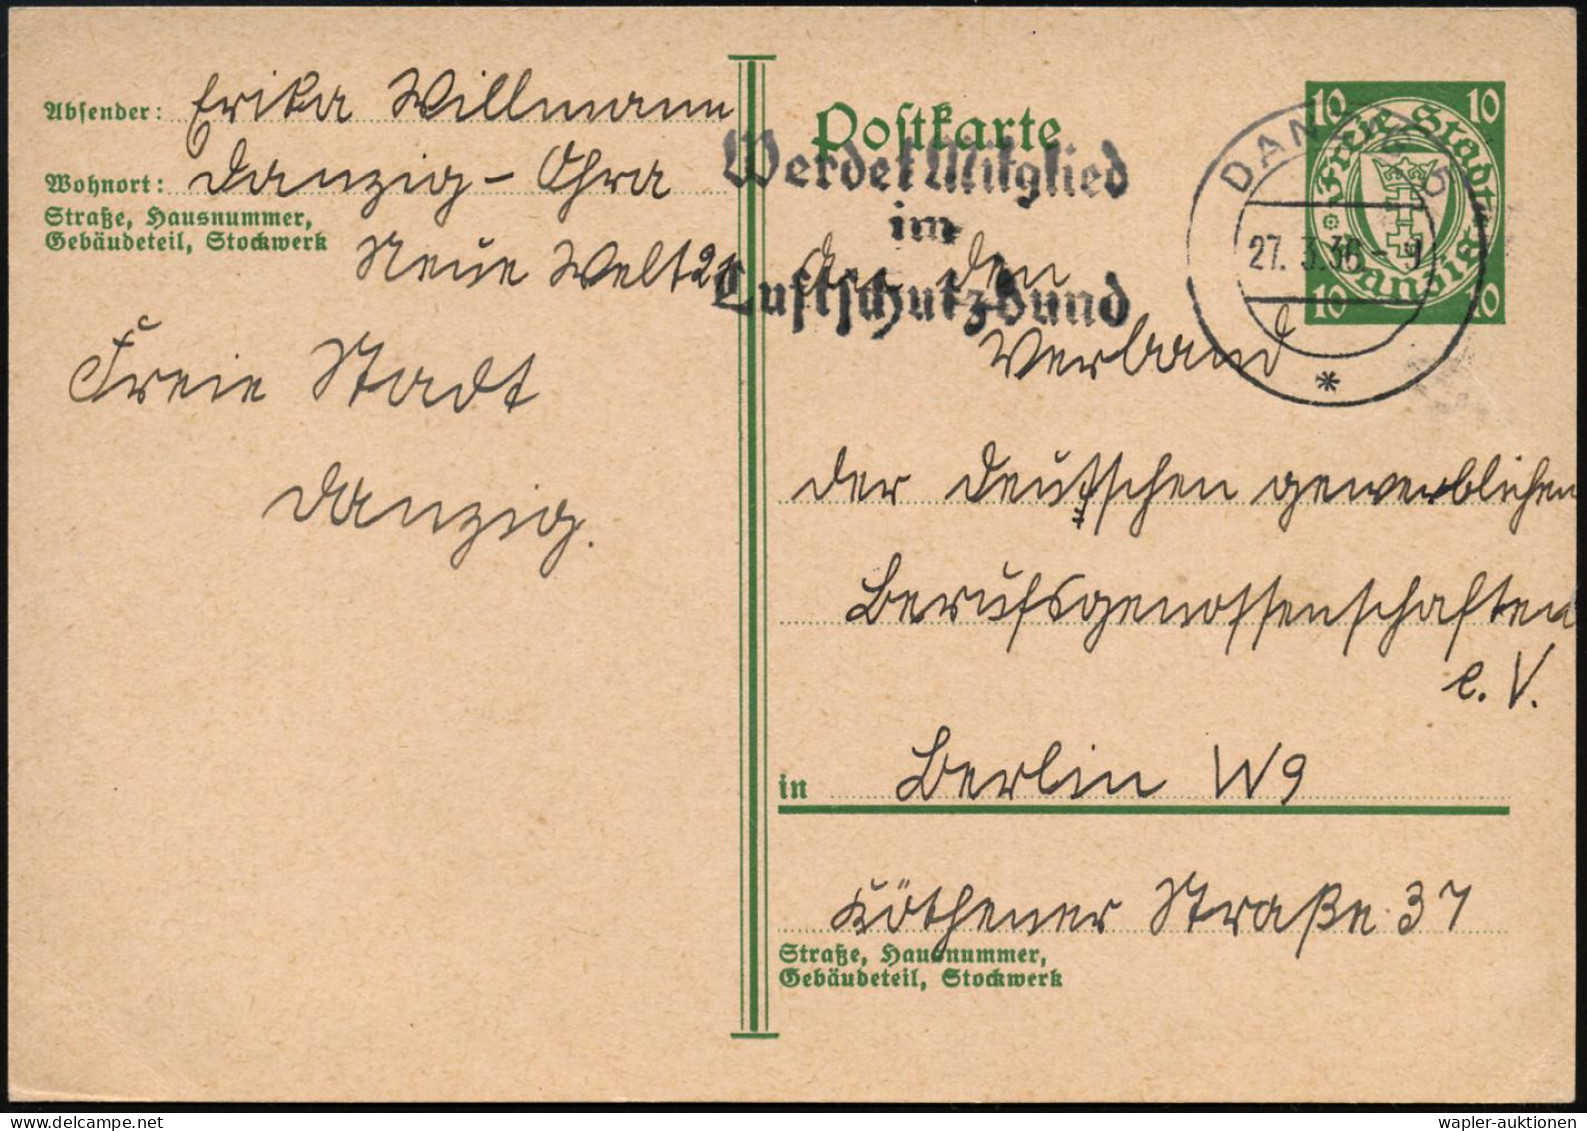 Absender: Erika Willmann
Wohnort: Danzig – Ohra
Straße, Hausnummer,
Gebäudeteil, Stockwerk
Neue Welt 21
Freie Stadt
Danzig.
Postkarte
Werdet Mitglied
im
Luftschutzbund
DANZIG 5
27. 3.36 - 9
d
*
10 10
Freie Stadt
Danzig
10 10
An den
Verband
der Deutschen gewerblichen
Berufsgenossenschaften
e. V.
in Berlin W9
Köthener Straße 37
Straße, Hausnummer,
Gebäudeteil, Stockwerk
wapler-auktionen